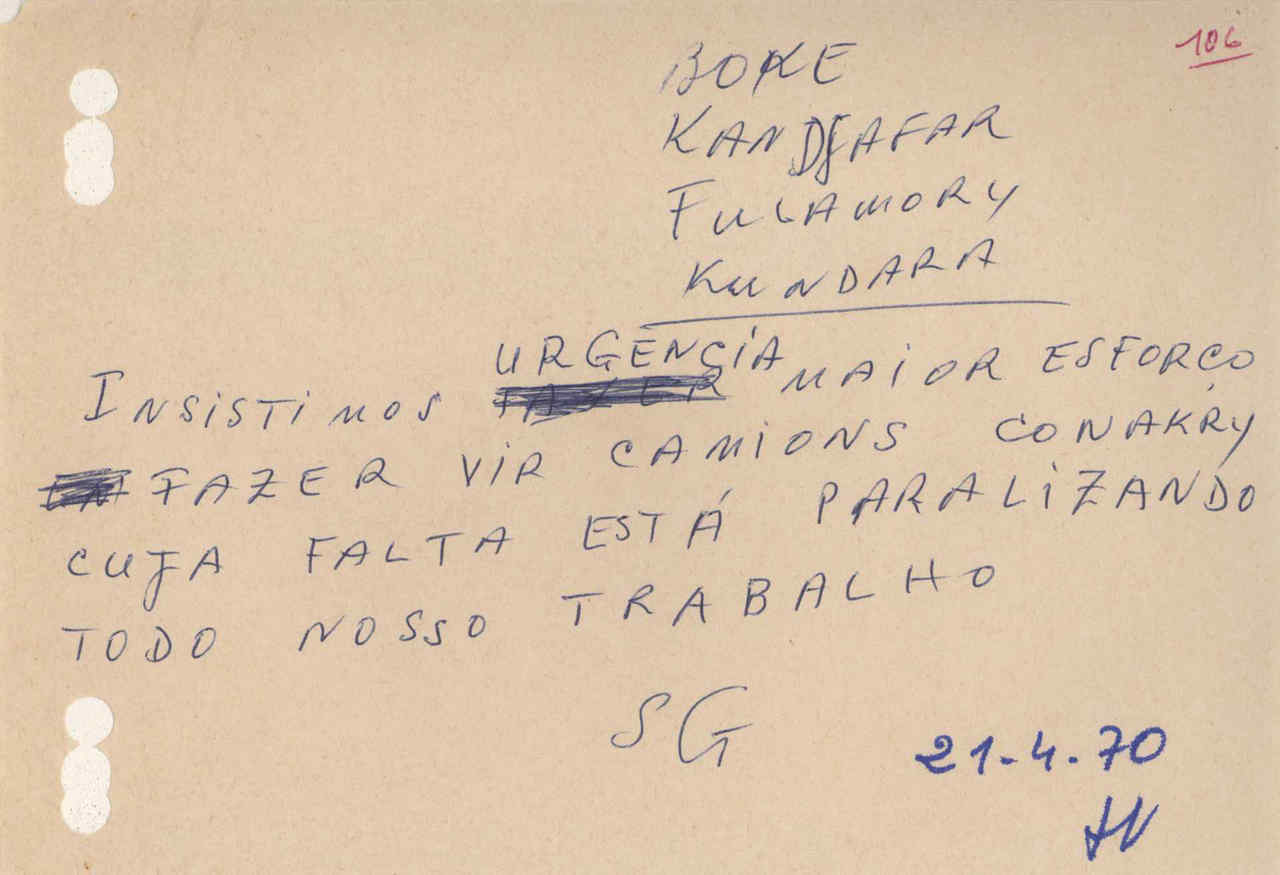 106
BOKE
KANDJAFAR
FULAMORY
KUNDARA
INSISTIMOS URGÊNCIA MAIOR ESFORÇO
FAZER VIR CAMIONS CONAKRY
CUJA FALTA ESTÁ PARALIZANDO
TODO NOSSO TRABALHO
SG
21-4-70